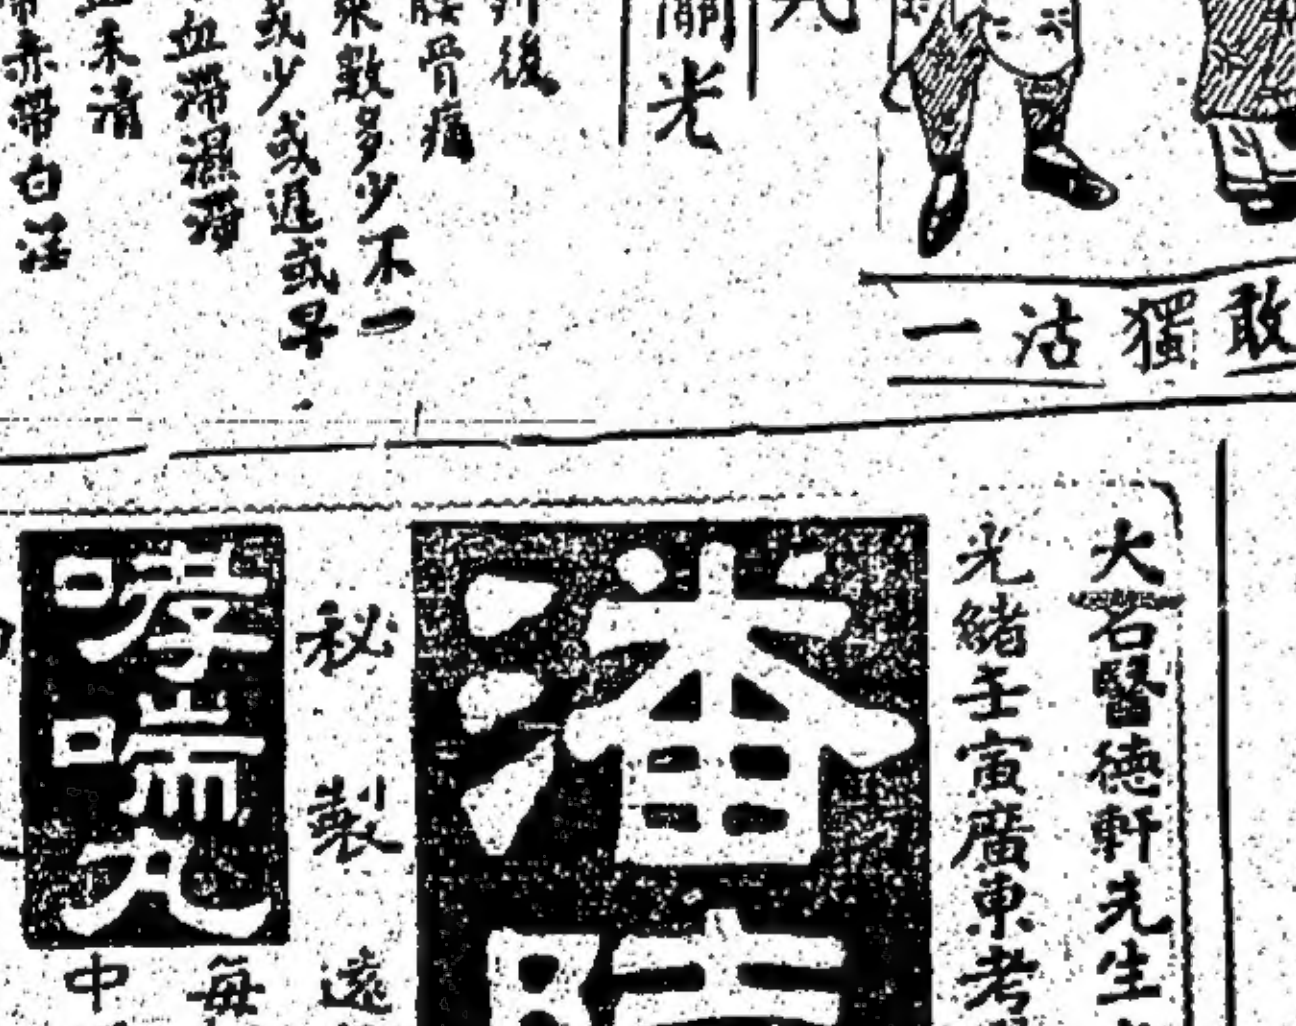 關光
後
腰骨痛
來數多少不一
或少或遲或早
血滯濕滯
未清
帶赤帶白淫
敢獨沽一
大名醫德軒先生
光緒壬寅廣東考
潘
秘製遠
每
哮喘丸
中